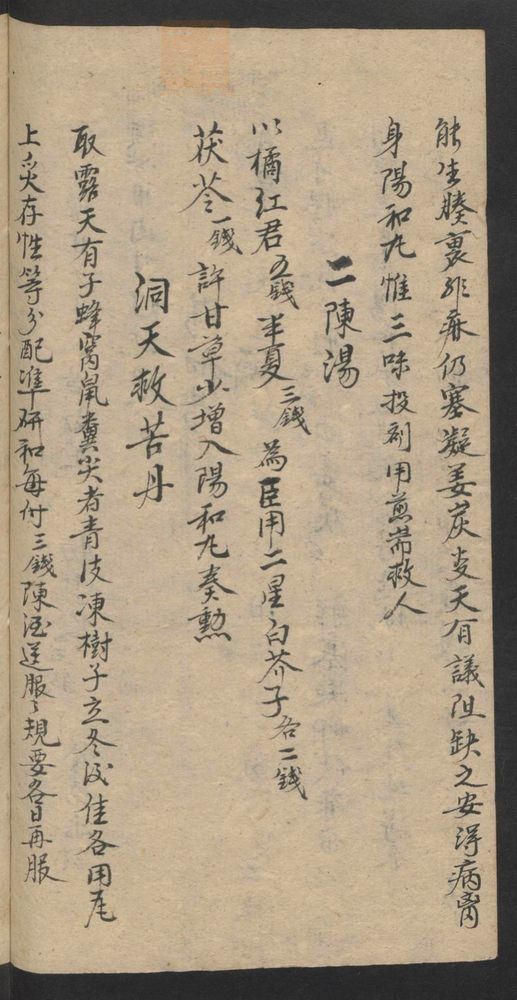 能生腠裏非麻仍塞凝姜炭麦天有議阻缺之安得病胷
身陽和丸惟三味投剤用煎當救人
二陳湯
以橘红君五錢半夏三錢為臣用二星白芥子各二錢
茯苓一錢許甘草少增入陽和丸奏勲
洞天救苦丹
取露天有子蜂窩鼠糞尖者青皮凍樹子立冬後佳各用尾
上炙存性等分配準研和每付三錢陳酒送服〻規要各日再服